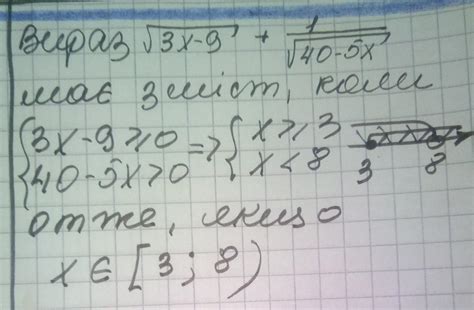 Вираз √3x-9 + 1/√40-5x
має зміст, коли
{3x-9⩾0 => {x⩾3
{40-5x>0 {x<8
3 8
отже, якщо
x ∈ [3; 8)